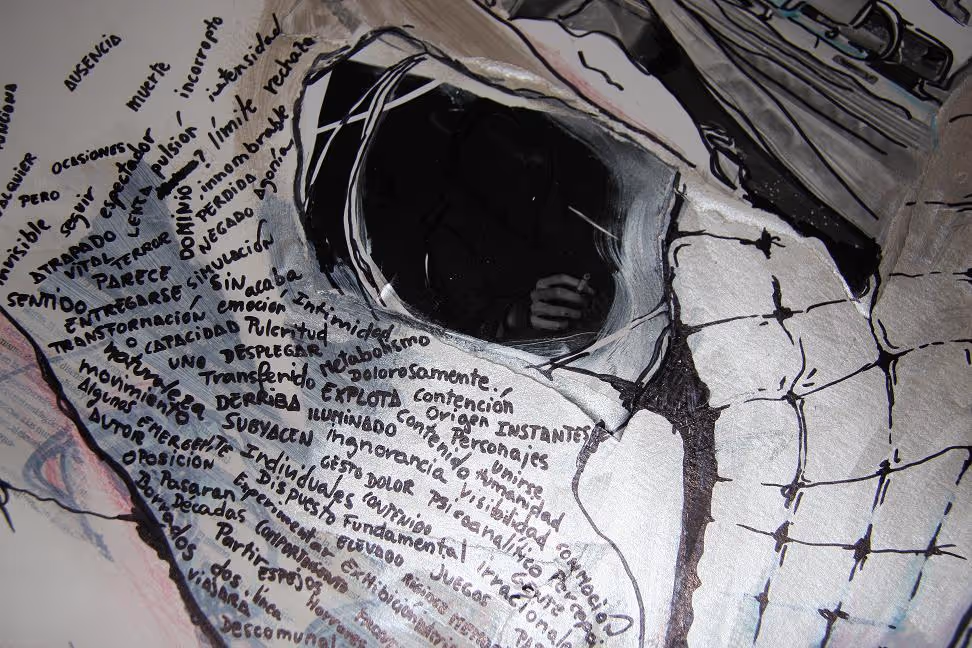 AUSENCIA
muerte
incorrupto
intensidad
rechazo
OCASIONES
espectador
pulsión
? límite
innombrable
PERO
seguir
LENTA
DOMINIO
PERDIDA
agonía
invisible
ATRAPADO
VITAL
TERROR
NEGADO
SENTIDO
PARECE
SIMULACIÓN
ENTREGARSE SIN acaba
TRANSFORMACIÓN emoción Intimidad
O CAPACIDAD Pulcritud
UNO DESPLEGAR metabolismo
naturaleza Transferido Dolorosamente
movimiento DERRIBA EXPLOTA contención
Algunas SUBYACEN ILUMINADO Origen INSTANTES
AUTOR EMERGENTE ingnorancia contenida Personajes
OPOSICIÓN Individuales GESTO DOLOR Visibilidad Humanidad unirse
Pasaran Experimentar DISPUESTO CONTENIDO PSICOANALÍTICO
Décadas Fundamental
Borrados COMPORTAMIENTO ELEVADO Irracional
Partir EXHIBICIÓN JUEGOS
dos ESPEJOS
línea
VIAJARA
Descomunal